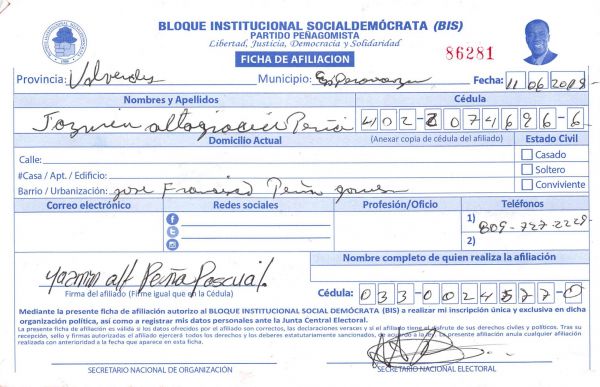 BLOQUE INSTITUCIONAL SOCIALDEMÓCRATA (BIS)
PARTIDO PEÑAGOMISTA
Libertad, Justicia, Democracia y Solidaridad
FICHA DE AFILIACION
86281
Provincia: Valverde Municipio: Esperanza Fecha: 11 06 2018
Nombres y Apellidos Cédula
Altagracia Peña 402-2074696-6
Domicilio Actual (Anexar copia de cédula del afiliado) Estado Civil
Calle: Casado
#Casa / Apt. / Edificio: Soltero
Barrio / Urbanización: Jose Francisco Peña Gomez Conviviente
Correo electrónico Redes sociales Profesión/Oficio Teléfonos
1) 809-727-2229-
2)
Nombre completo de quien realiza la afiliación
Yazmin alt Peña Pascual.
Firma del afiliado (Firme igual que en la Cédula) Cédula: 033-0024577-0
Mediante la presente ficha de afiliación autorizo al BLOQUE INSTITUCIONAL SOCIAL DEMÓCRATA (BIS) a realizar mi inscripción única y exclusiva en dicha
organización política, así como a registrar mis datos personales ante la Junta Central Electoral.
La presente ficha de afiliación es válida si los datos ofrecidos por el afiliado son correctos, las declaraciones veraces y si el afiliado tiene el disfrute de sus derechos civiles y políticos. Tras su
recepción, sello y firmas autorizadas el afiliado ejercerá todos los derechos y los deberes estatutariamente sancionados, de acuerdo a la ley. La presente afiliación anula cualquier afiliación
realizada con anterioridad a la fecha que aparece en esta ficha.
SECRETARIO NACIONAL DE ORGANIZACIÓN SECRETARIO NACIONAL ELECTORAL